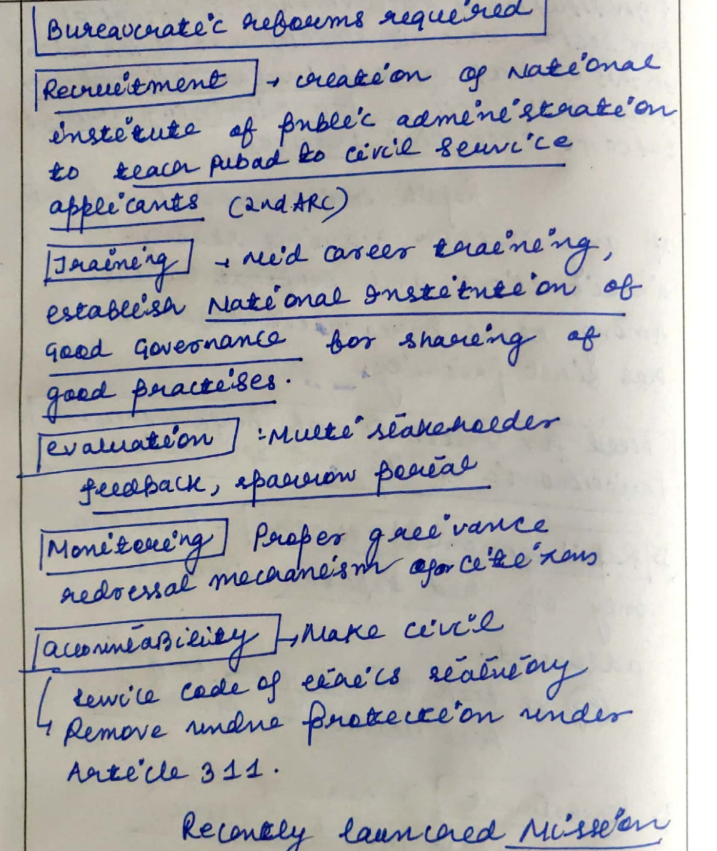 Bureaucratic reforms required
Recruitment → creation of National
institute of public administration
to teach pubad to civil service
applicants (2nd ARC)
Training → mid career training,
establish National Institution of
Good Governance for sharing of
good practises.
evaluation :- Multi stakeholder
feedback, sparrow portal
Monitering Proper greivance
redressal mechanism for citizens
accountability → Make civil
service code of ethics statutory
Remove undue protection under
Article 311.
Recently launched Mission